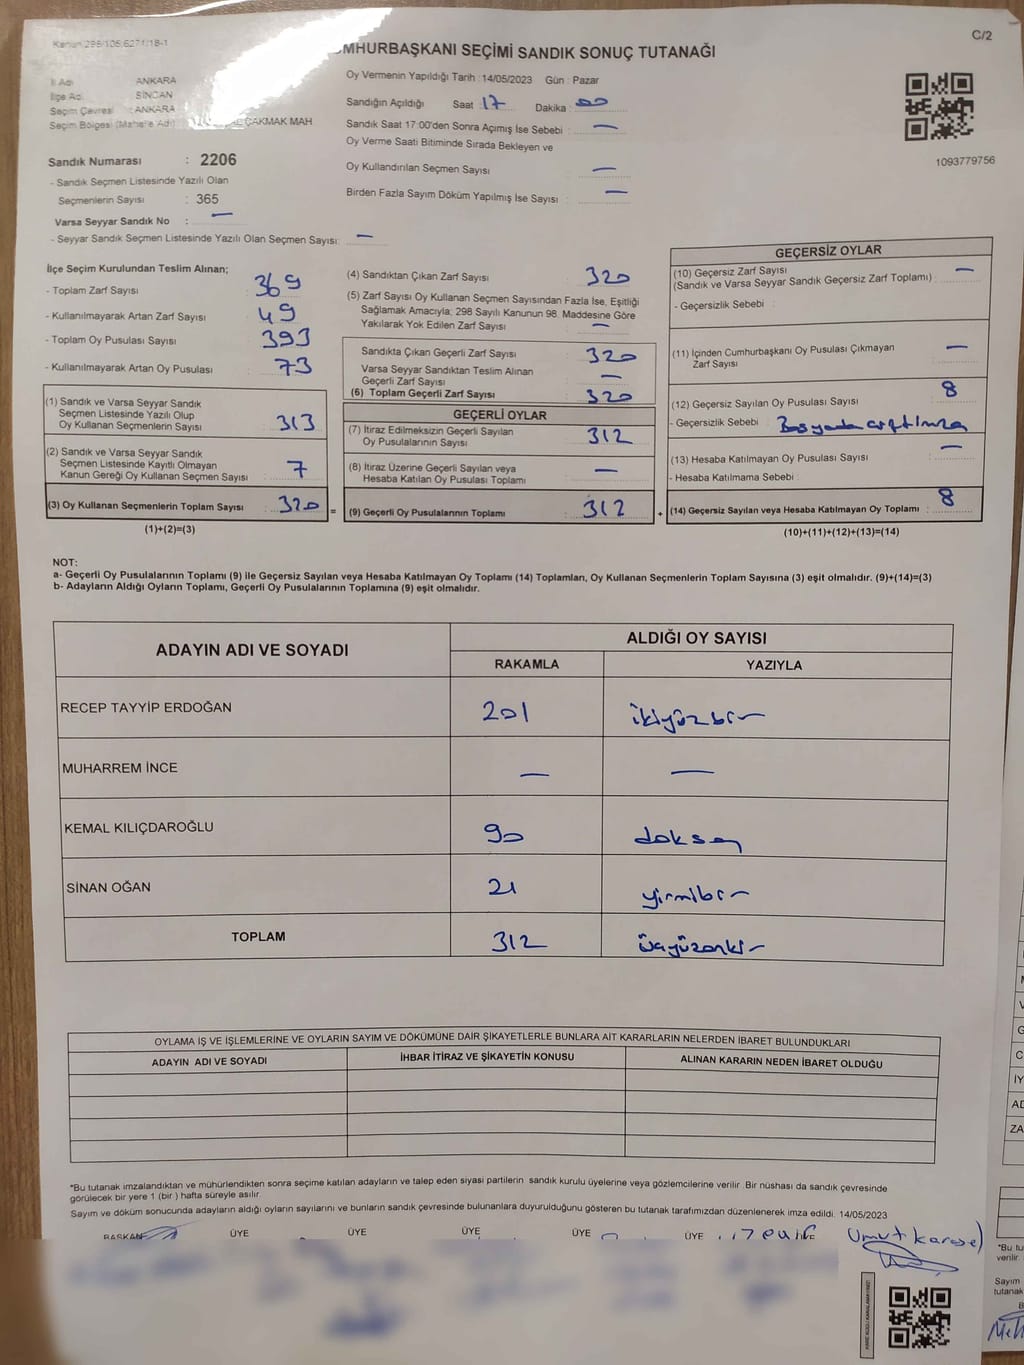 Kanun 298/105,6271/18-1
C/2
MHURBAŞKANI SEÇİMİ SANDIK SONUÇ TUTANAĞI
İl Adı : ANKARA
İlçe Adı : SİNCAN
Seçim Çevresi : ANKARA
Seçim Bölgesi (Mahalle Adı) ÇAKMAK MAH
Oy Vermenin Yapıldığı Tarih : 14/05/2023 Gün : Pazar
Sandığın Açıldığı Saat : 17 Dakika : 00
Sandık Saat 17:00'den Sonra Açımış İse Sebebi : —
Oy Verme Saati Bitiminde Sırada Bekleyen ve
Oy Kullandırılan Seçmen Sayısı : —
Birden Fazla Sayım Döküm Yapılmış İse Sayısı : —
1093779756
Sandık Numarası : 2206
- Sandık Seçmen Listesinde Yazılı Olan
Seçmenlerin Sayısı : 365
Varsa Seyyar Sandık No : —
- Seyyar Sandık Seçmen Listesinde Yazılı Olan Seçmen Sayısı: —
İlçe Seçim Kurulundan Teslim Alınan;
- Toplam Zarf Sayısı : 369
- Kullanılmayarak Artan Zarf Sayısı : 49
- Toplam Oy Pusulası Sayısı : 393
- Kullanılmayarak Artan Oy Pusulası : 73
(1) Sandık ve Varsa Seyyar Sandık
Seçmen Listesinde Yazılı Olup
Oy Kullanan Seçmenlerin Sayısı : 313
(2) Sandık ve Varsa Seyyar Sandık
Seçmen Listesinde Kayıtlı Olmayan
Kanun Gereği Oy Kullanan Seçmen Sayısı : 7
(3) Oy Kullanan Seçmenlerin Toplam Sayısı : 320 =
(1)+(2)=(3)
(4) Sandıktan Çıkan Zarf Sayısı : 320
(5) Zarf Sayısı Oy Kullanan Seçmen Sayısından Fazla İse, Eşitliği
Sağlamak Amacıyla; 298 Sayılı Kanunun 98. Maddesine Göre
Yakılarak Yok Edilen Zarf Sayısı : —
Sandıkta Çıkan Geçerli Zarf Sayısı : 320
Varsa Seyyar Sandıktan Teslim Alınan
Geçerli Zarf Sayısı : —
(6) Toplam Geçerli Zarf Sayısı : 320
GEÇERLİ OYLAR
(7) İtiraz Edilmeksizin Geçerli Sayılan
Oy Pusulalarının Sayısı : 312
(8) İtiraz Üzerine Geçerli Sayılan veya
Hesaba Katılan Oy Pusulası Toplamı : —
(9) Geçerli Oy Pusulalarının Toplamı : 312 +
GEÇERSİZ OYLAR
(10) Geçersiz Zarf Sayısı
(Sandık ve Varsa Seyyar Sandık Geçersiz Zarf Toplamı) : —
- Geçersizlik Sebebi :
(11) İçinden Cumhurbaşkanı Oy Pusulası Çıkmayan
Zarf Sayısı : —
(12) Geçersiz Sayılan Oy Pusulası Sayısı : 8
- Geçersizlik Sebebi :
(13) Hesaba Katılmayan Oy Pusulası Sayısı : —
- Hesaba Katılmama Sebebi :
(14) Geçersiz Sayılan veya Hesaba Katılmayan Oy Toplamı : 8
(10)+(11)+(12)+(13)=(14)
NOT:
a- Geçerli Oy Pusulalarının Toplamı (9) ile Geçersiz Sayılan veya Hesaba Katılmayan Oy Toplamı (14) Toplamları, Oy Kullanan Seçmenlerin Toplam Sayısına (3) eşit olmalıdır. (9)+(14)=(3)
b- Adayların Aldığı Oyların Toplamı, Geçerli Oy Pusulalarının Toplamına (9) eşit olmalıdır.
ADAYIN ADI VE SOYADI ALDIĞI OY SAYISI
RAKAMLA YAZIYLA
RECEP TAYYİP ERDOĞAN 201 ikiyüzbir
MUHARREM İNCE — —
KEMAL KILIÇDAROĞLU 90 doksan
SİNAN OĞAN 21 yirmibir
TOPLAM 312 üçyüzoniki
OYLAMA İŞ VE İŞLEMLERİNE VE OYLARIN SAYIM VE DÖKÜMÜNE DAİR ŞİKAYETLERLE BUNLARA AİT KARARLARIN NELERDEN İBARET BULUNDUKLARI
ADAYIN ADI VE SOYADI İHBAR İTİRAZ VE ŞİKAYETİN KONUSU ALINAN KARARIN NEDEN İBARET OLDUĞU
*Bu tutanak imzalandıktan ve mühürlendikten sonra seçime katılan adayların ve talep eden siyasi partilerin sandık kurulu üyelerine veya gözlemcilerine verilir. Bir nüshası da sandık çevresinde
görülecek bir yere 1 (bir ) hafta süreyle asılır.
Sayım ve döküm sonucunda adayların aldığı oyların sayılarını ve bunların sandık çevresinde bulunanlara duyurulduğunu gösteren bu tutanak tarafımızdan düzenlenerek imza edildi. 14/05/2023
BAŞKAN ÜYE ÜYE ÜYE ÜYE ÜYE